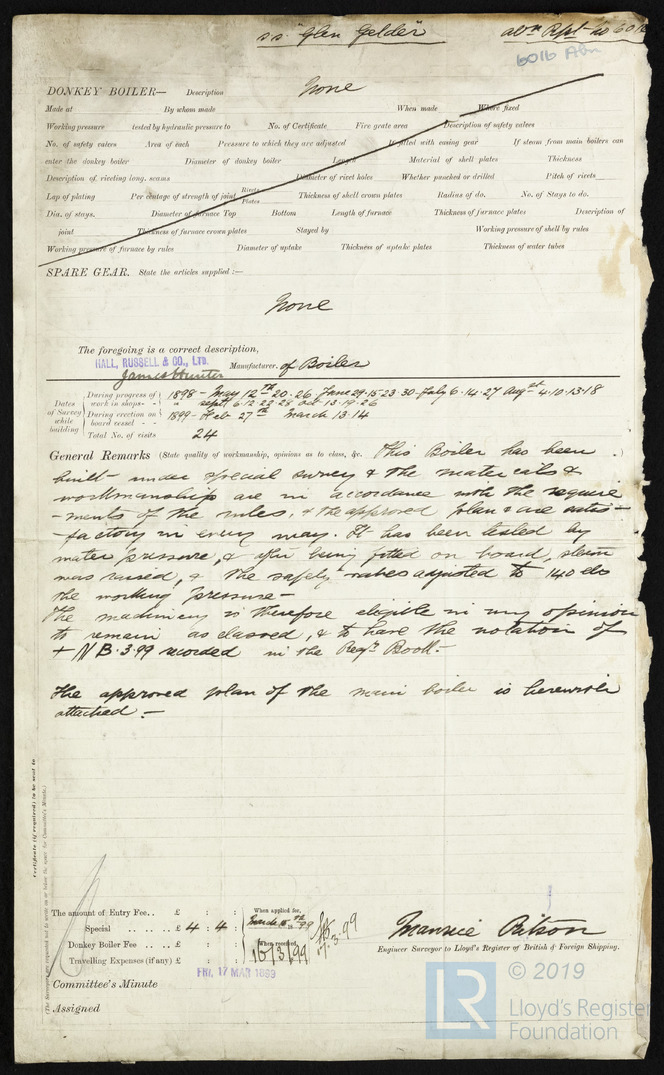 s.s. "Glen Gelder" abn Rpt no 6016
6016 Abn
DONKEY BOILER— Description None
Made at By whom made When made Where fixed
Working pressure tested by hydraulic pressure to No. of Certificate Fire grate area Description of safety valves
No. of safety valves Area of each Pressure to which they are adjusted If fitted with easing gear If steam from main boilers can
enter the donkey boiler Diameter of donkey boiler Length Material of shell plates Thickness
Description of riveting long. seams Diameter of rivet holes Whether punched or drilled Pitch of rivets
Lap of plating Per centage of strength of joint Rivets Plates Thickness of shell crown plates Radius of do. No. of Stays to do.
Dia. of stays. Diameter of furnace Top Bottom Length of furnace Thickness of furnace plates Description of
joint Thickness of furnace crown plates Stayed by Working pressure of shell by rules
Working pressure of furnace by rules Diameter of uptake Thickness of uptake plates Thickness of water tubes
SPARE GEAR. State the articles supplied :—
None
The foregoing is a correct description,
HALL, RUSSELL & CO., LTD.
James Hunter Manufacturer. of Boiler
Dates of Survey while building
During progress of work in shops - - 1898 - May 12th 20. 26 June 29. 15. 23. 30 - July 6. 14. 27 Augst 4. 10. 13. 18
" Sept 6. 12. 22. 28 Oct 13. 19. 26
During erection on board vessel - - - 1899 - Feb 27th March 13. 14
Total No. of visits 24
General Remarks (State quality of workmanship, opinions as to class, &c. This Boiler has been
built under special survey & the materials &
workmanship are in accordance with the require
-ments of the rules, & the approved plan & are satis-
-factory in every way. It has been tested by
water pressure, & after being fitted on board, steam
was raised, & the safety valves adjusted to 140 lbs
the working pressure -
The machinery is therefore eligible in my opinion
to remain as classed, & to have the notation of
+ NB. 3.99 recorded in the Regr. Book. -
The approved plan of the main boiler is herewith
attached. -
Certificate (if required) to be sent to
(The Surveyors are requested not to write on or below the space for Committee's Minute.)
The amount of Entry Fee.. £ : : When applied for,
Special .. .. £ 4 : 4 : March 15th 1899
Donkey Boiler Fee .. .. £ : : When received,
Travelling Expenses (if any) £ : : 16/3/99
17.3.99
Maurice Ritson
Engineer Surveyor to Lloyd's Register of British & Foreign Shipping.
FRI. 17 MAR 1899
Committee's Minute
Assigned
LR © 2019
Lloyd's Register
Foundation